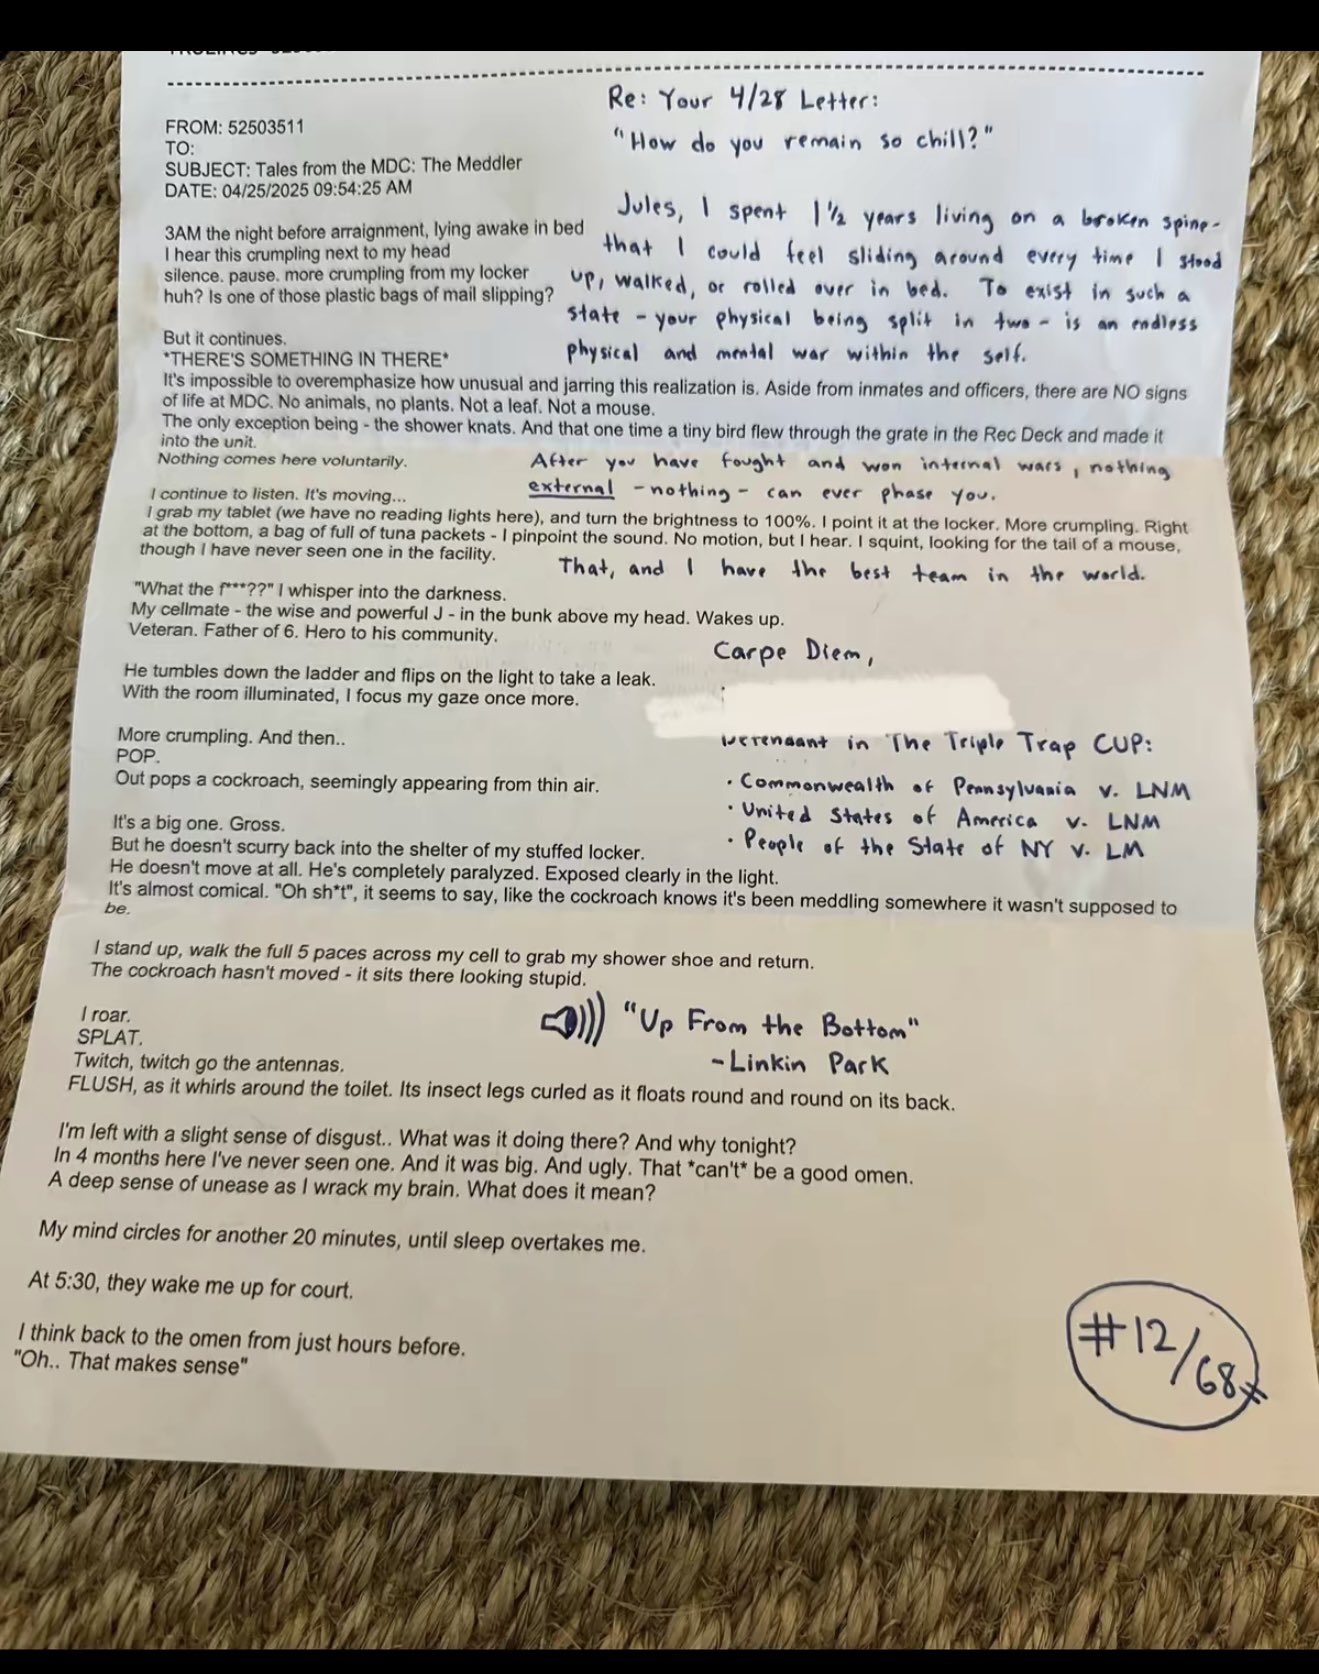 Re: Your 4/28 Letter:
"How do you remain so chill?"
FROM: 52503511
TO:
SUBJECT: Tales from the MDC: The Meddler
DATE: 04/25/2025 09:54:25 AM
Jules, I spent 1 1/2 years living on a broken spine-
that I could feel sliding around every time I stood
up, walked, or rolled over in bed. To exist in such a
state - your physical being split in two - is an endless
physical and mental war within the self.
3AM the night before arraignment, lying awake in bed
I hear this crumpling next to my head
silence. pause. more crumpling from my locker
huh? Is one of those plastic bags of mail slipping?
But it continues.
*THERE'S SOMETHING IN THERE*
It's impossible to overemphasize how unusual and jarring this realization is. Aside from inmates and officers, there are NO signs
of life at MDC. No animals, no plants. Not a leaf. Not a mouse.
The only exception being - the shower knats. And that one time a tiny bird flew through the grate in the Rec Deck and made it
into the unit.
Nothing comes here voluntarily.
After you have fought and won internal wars, nothing
external - nothing - can ever phase you.
I continue to listen. It's moving...
I grab my tablet (we have no reading lights here), and turn the brightness to 100%. I point it at the locker. More crumpling. Right
at the bottom, a bag of full of tuna packets - I pinpoint the sound. No motion, but I hear. I squint, looking for the tail of a mouse,
though I have never seen one in the facility.
That, and I have the best team in the world.
"What the f***??" I whisper into the darkness.
My cellmate - the wise and powerful J - in the bunk above my head. Wakes up.
Veteran. Father of 6. Hero to his community.
Carpe Diem,
He tumbles down the ladder and flips on the light to take a leak.
With the room illuminated, I focus my gaze once more.
Defendant in The Triple Trap CUP:
• Commonwealth of Pennsylvania v. LNM
• United States of America v. LNM
• People of the State of NY v. LM
More crumpling. And then..
POP.
Out pops a cockroach, seemingly appearing from thin air.
It's a big one. Gross.
But he doesn't scurry back into the shelter of my stuffed locker.
He doesn't move at all. He's completely paralyzed. Exposed clearly in the light.
It's almost comical. "Oh sh*t", it seems to say, like the cockroach knows it's been meddling somewhere it wasn't supposed to
be.
I stand up, walk the full 5 paces across my cell to grab my shower shoe and return.
The cockroach hasn't moved - it sits there looking stupid.
"Up From the Bottom"
- Linkin Park
I roar.
SPLAT.
Twitch, twitch go the antennas.
FLUSH, as it whirls around the toilet. Its insect legs curled as it floats round and round on its back.
I'm left with a slight sense of disgust.. What was it doing there? And why tonight?
In 4 months here I've never seen one. And it was big. And ugly. That *can't* be a good omen.
A deep sense of unease as I wrack my brain. What does it mean?
My mind circles for another 20 minutes, until sleep overtakes me.
At 5:30, they wake me up for court.
I think back to the omen from just hours before.
"Oh.. That makes sense"
#12/68